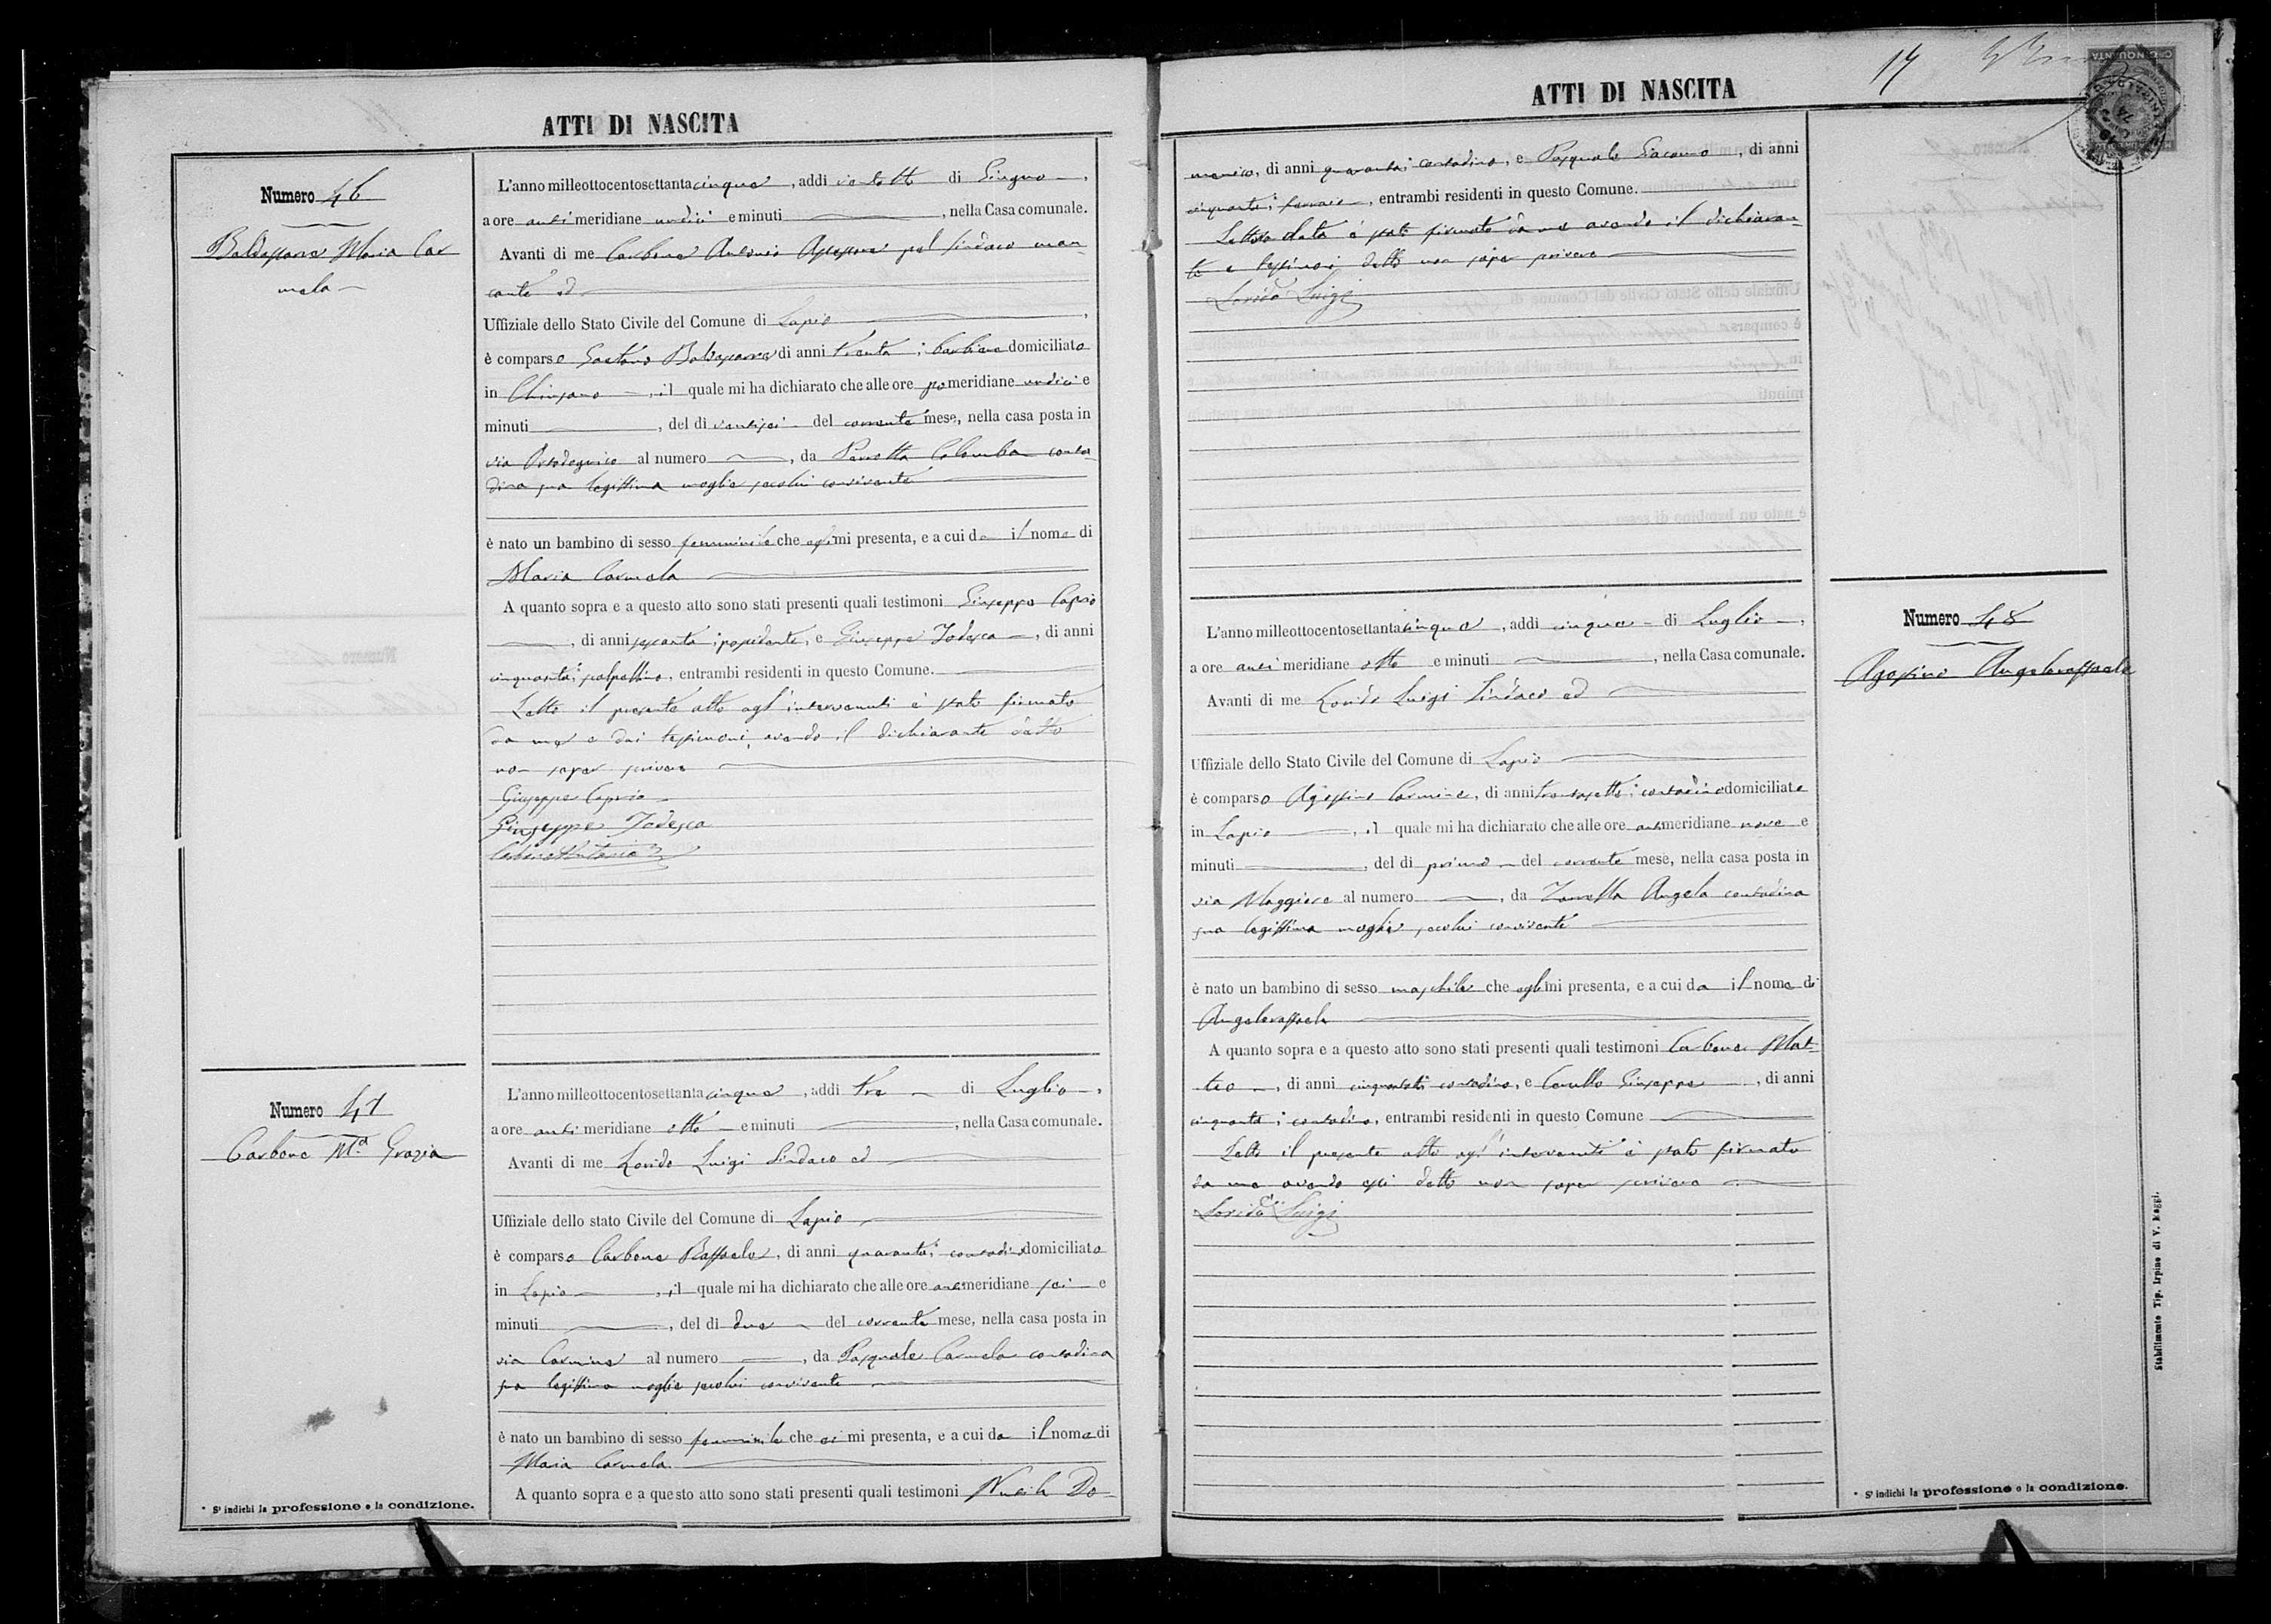 ATTI DI NASCITA
Numero 46
Baldassarre Maria Car
mela
L'anno milleottocentosettantacinque, addì ventotto di Giugno,
a ore anti meridiane undici e minuti, nella Casa comunale.
Avanti di me Carbone Antonio Assessore pel Sindaco man
cante ed
Uffiziale dello Stato Civile del Comune di Lapio,
è comparso Gaetano Baldassarre di anni trenta; barbiere domiciliato
in Chiusano, il quale mi ha dichiarato che alle ore pomeridiane undici e
minuti, del dì ventisei del corrente mese, nella casa posta in
via al numero, da Perrotta Colomba conta-
dina sua legittima moglie secolui convivente
è nato un bambino di sesso femminile che egli mi presenta, e a cui da il nome di
Maria Carmela
A quanto sopra e a questo atto sono stati presenti quali testimoni Giuseppe Caprio
, di anni sessanta; possidente, e Giuseppe Todesca, di anni
cinquanta; scalpellino, entrambi residenti in questo Comune.
Letto il presente atto agl'intervenuti è stato firmato
da me e dai testimoni, avendo il dichiarante detto
non saper scrivere
Giuseppe Caprio
Giuseppe Todesca
Carbone Antonio
Numero 47
Carbone Mª Grazia
L'anno milleottocentosettantacinque, addì tre di Luglio,
a ore anti meridiane otto e minuti, nella Casa comunale.
Avanti di me Lorido Luigi Sindaco ed
Uffiziale dello stato Civile del Comune di Lapio
è comparso Carbone Raffaele, di anni quaranta; contadino domiciliato
in Lapio, il quale mi ha dichiarato che alle ore antimeridiane sei e
minuti, del dì due del corrente mese, nella casa posta in
via Carmine al numero, da Pasquale Carmela contadina
sua legittima moglie secolui convivente
è nato un bambino di sesso femminile che ei mi presenta, e a cui da il nome di
Maria Carmela
A quanto sopra e a questo atto sono stati presenti quali testimoni Do-
* S'indichi la professione o la condizione.
ATTI DI NASCITA
17
menico, di anni quaranta; contadino, e Pasquale Giacomo, di anni
cinquanta; entrambi residenti in questo Comune.
è stato firmato da me avendo il dichiaran-
te e testimoni detto non saper scrivere
Lorido Luigi
Numero 48
Agostino Angeloraffaele
L'anno milleottocentosettantacinque, addì cinque di Luglio,
a ore anti meridiane otto e minuti, nella Casa comunale.
Avanti di me Lorido Luigi Sindaco ed
Uffiziale dello Stato Civile del Comune di Lapio
è comparso Agostino Carmine, di anni trentasette; contadino domiciliato
in Lapio, il quale mi ha dichiarato che alle ore antimeridiane nove e
minuti, del dì primo del corrente mese, nella casa posta in
via Maggiore al numero, da Angela contadina
sua legittima moglie secolui convivente
è nato un bambino di sesso maschile che egli mi presenta, e a cui da il nome di
Angeloraffaele
A quanto sopra e a questo atto sono stati presenti quali testimoni Carbone Mat-
teo, di anni contadino, e Carullo Giuseppe, di anni
cinquanta; contadino, entrambi residenti in questo Comune
Letto il presente atto agl'intervenuti è stato firmato
da me avendo essi detto non saper scrivere
Lorido Luigi
Stabilimento Tip. Irpino di V. Maggi.
* S'indichi la professione o la condizione.